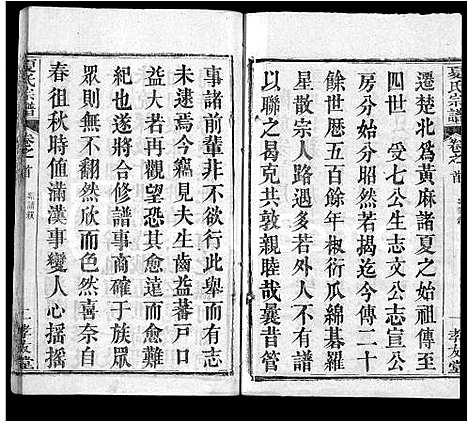 夏氏宗譜
卷之首
一
孝友堂
遷楚北為黃麻諸夏之始祖傳至
四世　受七公生志文公志宣公
房分四分昭然若揭迄今傳二十
餘世曆五百餘年椒衍瓜綿碁羅
星散宗人路遇多若外人不有譜
以聯之曷克共敦親睦哉曩昔管
事諸前輩非不欲行此舉而有志
未逮焉今竊見夫生齒益蕃戸口
益大若再觀望恐其愈遠而愈難
紀也遂將合修譜事商確于族眾
眾則無不翻然欣而色然喜奈自
春徂秋時值滿漢事變人心搖搖
夏氏宗譜
卷之首
二
孝友堂